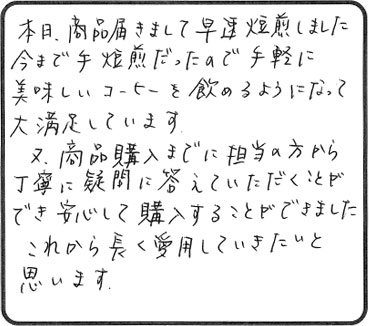 本日、商品届きまして早速焙煎しました
今まで手焙煎だったので手軽に
美味しいコーヒーを飲めるようになって
大満足しています.
又、商品購入までに担当の方から
丁寧に疑問に答えていただくことが
でき安心して購入することができました
これから長く愛用していきたいと
思います.